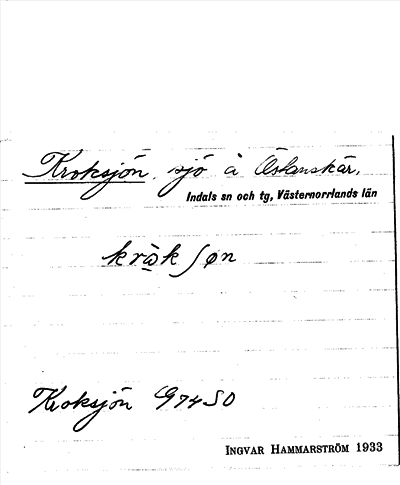 Kroksjön, sjö å Östanskär,
Indals sn och tg, Västernorrlands län
kròkʃøn
Kroksjön G74SO
INGVAR HAMMARSTRÖM 1933